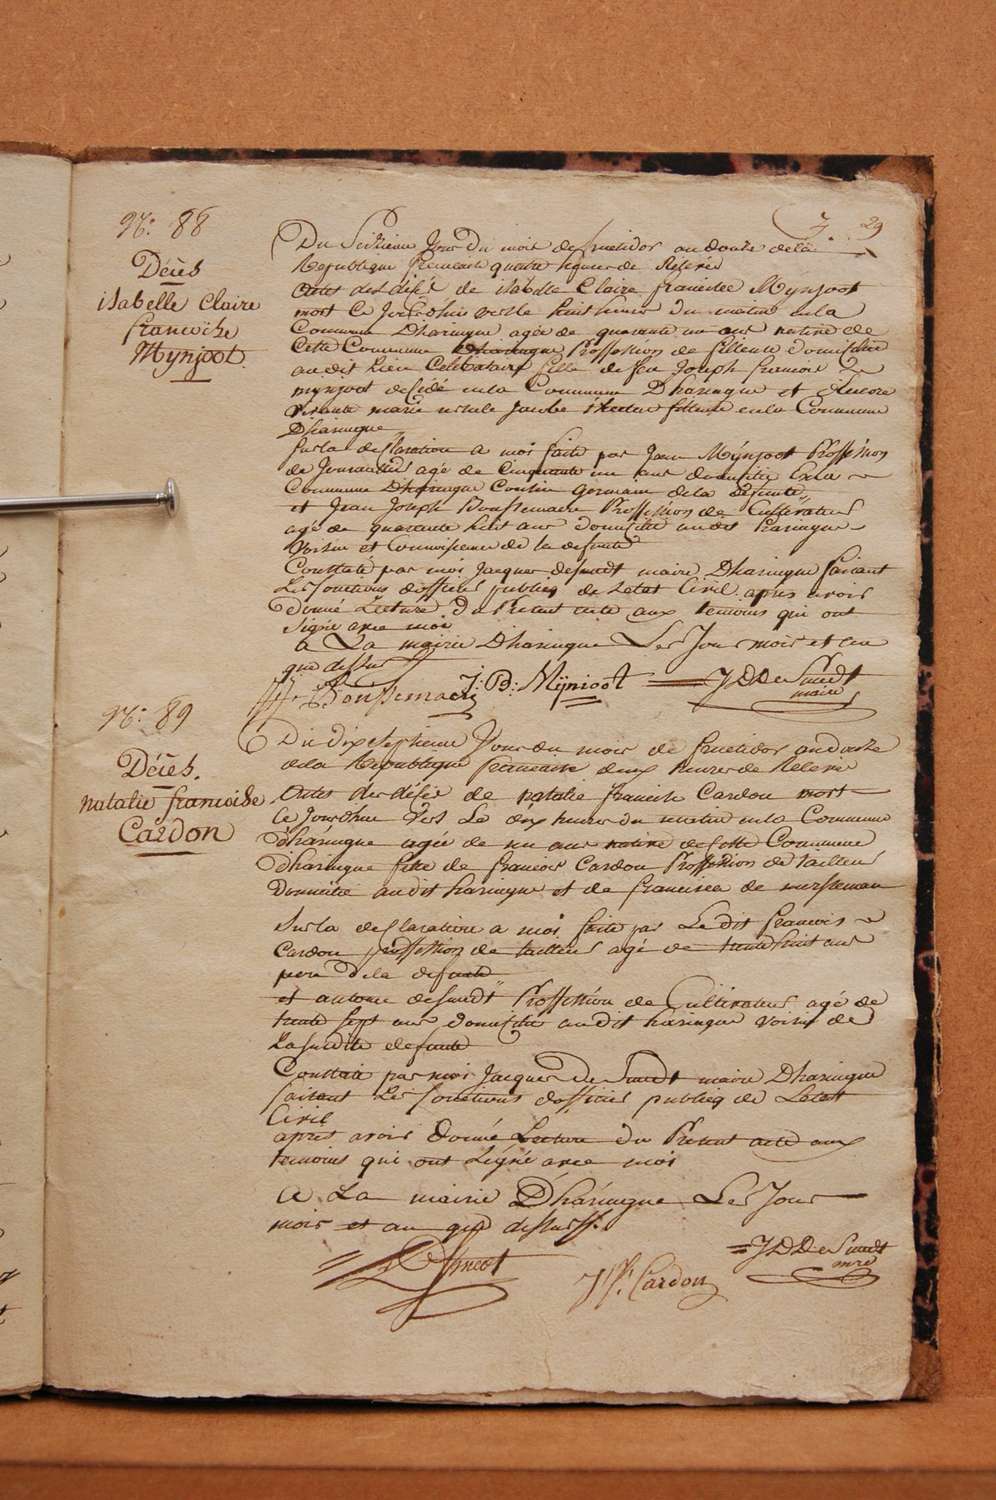 29
No: 88
Décès
isabelle Claire
francoise
Mynjoot
Du Sixieme Jour du mois de fructidor an douze de la
Republique francaise quatre heures de Relevée
Actes de décè de isabelle Claire francisce Mynjoot
mort ce Jourdhui vers le huit heures du matin en la
Commune Dharingue agée de quarante un ans native de
Cette Commune Proffession de filleuse domiciliée
au dit lieu Celibataire fille de feu Joseph francois
mynjoot décédé en la Commune Dharingue et encore
vivante marie filleuse en la Commune
Dharingue
sur la declaration a moi faite par Jean Mÿnjoot Proffesion
de Journalier agé de Cinquante un ans domicilié en la
Commune Dharingue Cousin germain de la defunte
et Jean Joseph Boussemaere Proffession de Cultivateur
agé de quarante huit ans domicilié au dit haringue
voisin et Connoissence de la defunte
Constaté par moi Jacques desmedt maire Dharingue faisant
Les fonctions d'officier publicq de Letat Civil après avoir
donné Lecture du Présent acte aux temoins qui ont
signé avec moi
a La mairie Dharingue Les Jour mois et an
que dessus
Boussemaere J: B: Mÿnjoot JDDe Smedt
maire
No: 89
Décès.
natalie francoise
Cardon
Du dix septieme Jour du mois de fructidor an douze
de la Republique francaise deux heures de Relevée
Actes de décée de natalie francisce Cardon mort
ce Jourdhui vers Le dix heures du matin en la Commune
dharingue agée de un ans native de cette Commune
dharingue fille de francois Cardon Proffession de tailleur
Domicilié au dit haringue et de francisca de
Sur la declaration a moi faite par Le dit francois
Cardon proffession de tailleur agé de trente huit ans
pere de la defunte
et antoine desmedt Proffession de Cultivateur agé de
trente sept ans domicilié au dit haringue voisin de
La susdite defunte
Constaté par moi Jacques de Smedt maire Dharingue
faisant Les fonctions d'officier publicq de Letat
Civil
après avoir donné Lecture du Présent acte aux
temoins qui ont signé avec moi
a La mairie Dharingue Les Jour
mois et an que dessus
Desmedt J f: Cardon JDDe Smedt
mre